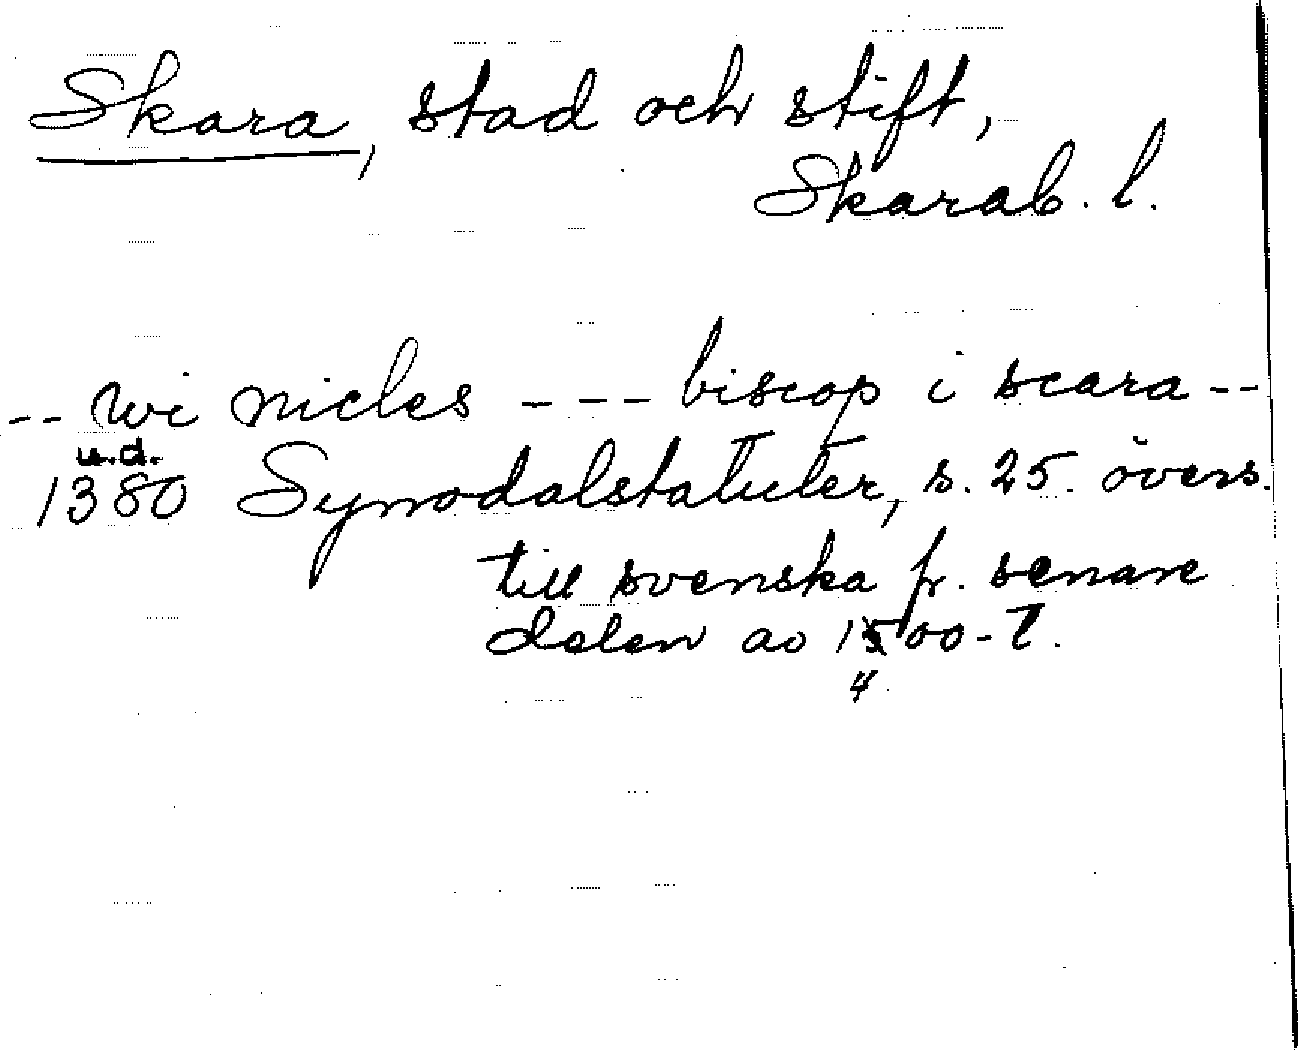 Skara, stad och stift,
Skarab. l.
-- wi nicles --- biscop i scara --
u.d.
1380 Synodalstatuter, s. 25. övers.
till svenska fr. senare
delen av 1500-t.
4